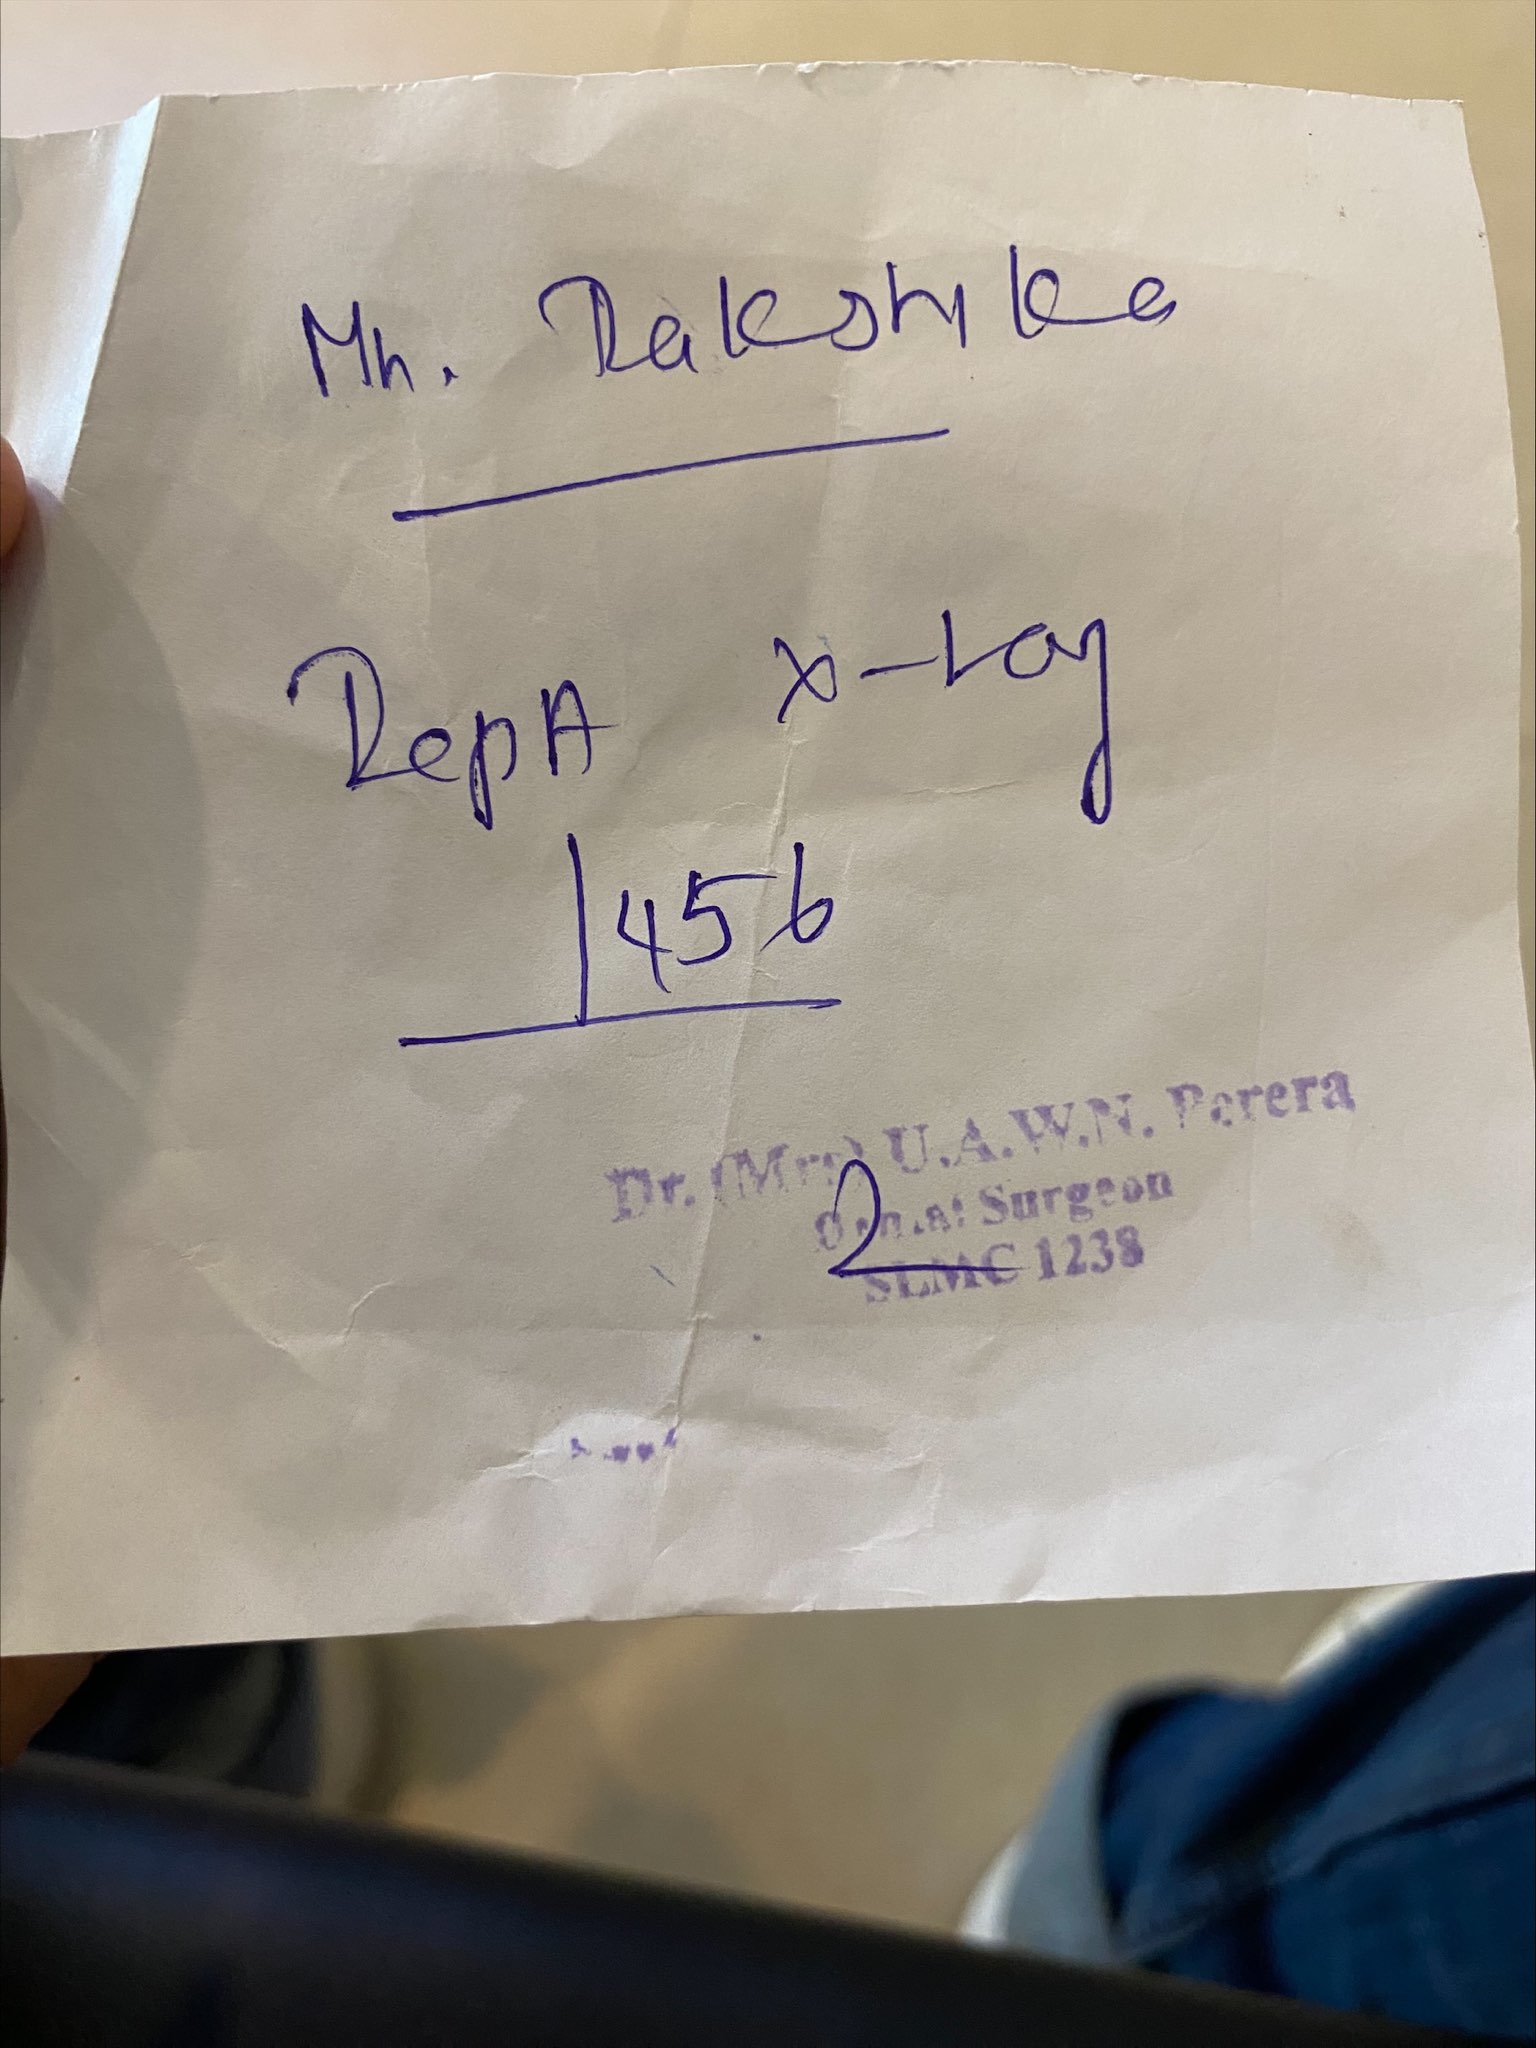 Mr. Rakshika
RepA X-ray
456
Dr. (Mrs) U.A.W.N. Perera
Dental Surgeon
SLMC 1238